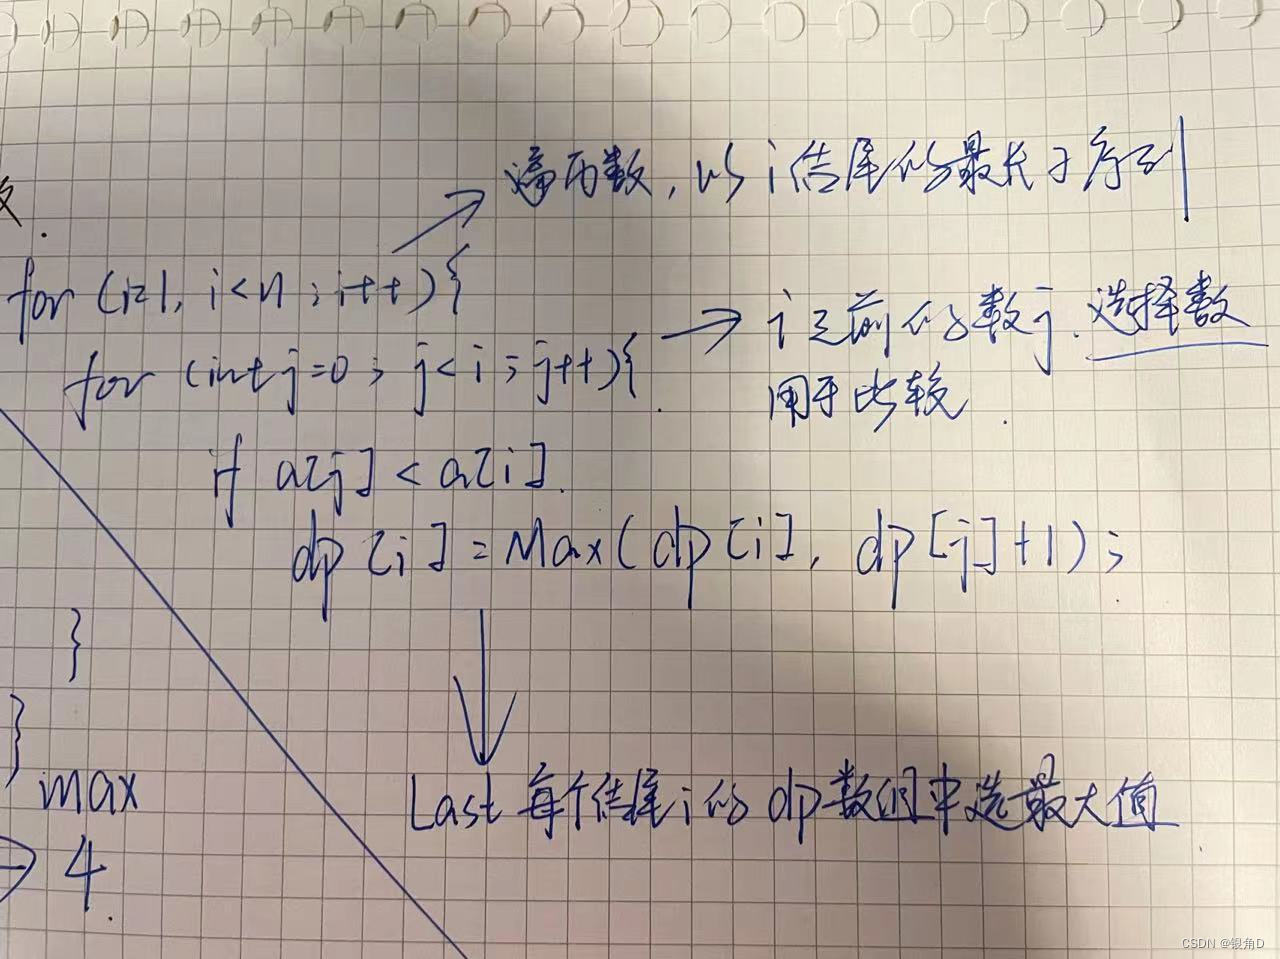 遍历数，以i结尾的最长子序列
for (i=1, i<n ; i++){
i之前的数j. 选择数
for (int j=0 ; j<i ; j++){
用于比较.
if a[j] < a[i].
dp[i] = Max(dp[i], dp[j]+1);
}
}
max
Last 每个结尾i的dp数组中选最大值
→ 4.
CSDN @银角D